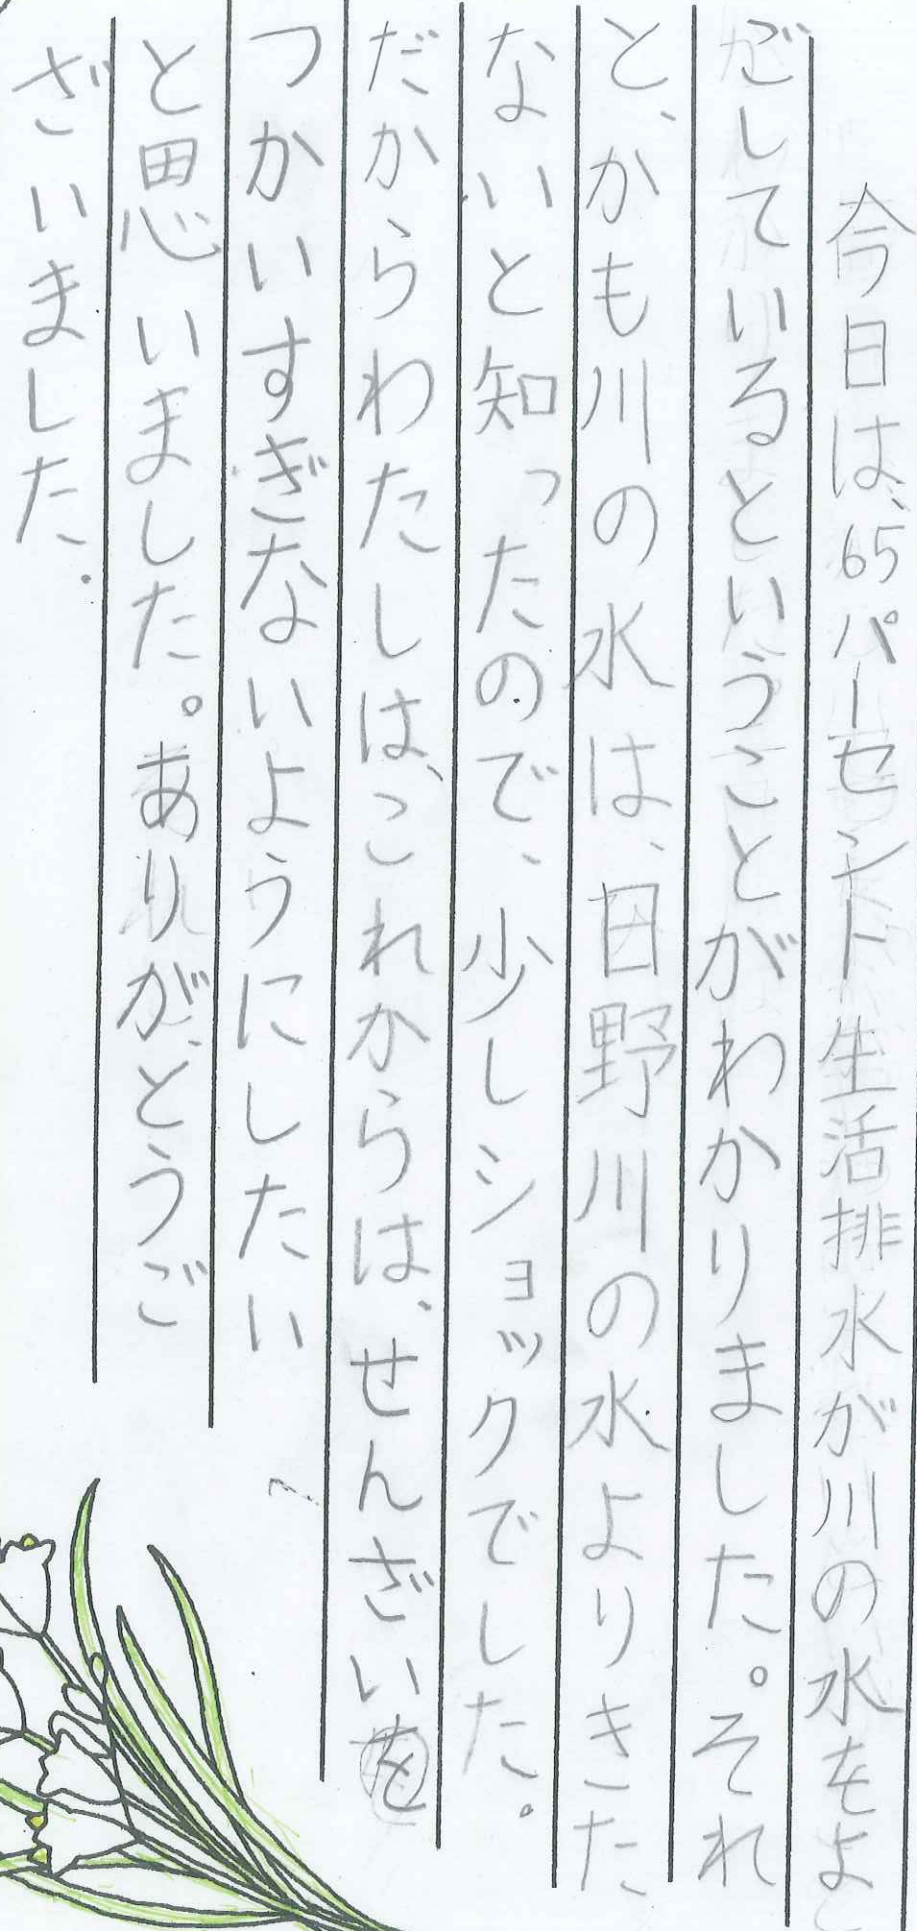 今日は、65パーセント生活排水が川の水をよ
ごしているということがわかりました。それ
と、かも川の水は、日野川の水よりきた
ないと知ったので、少しショックでした。
だからわたしは、これからは、せんざいを
つかいすぎないようにしたい
と思いました。ありがとうご
ざいました.